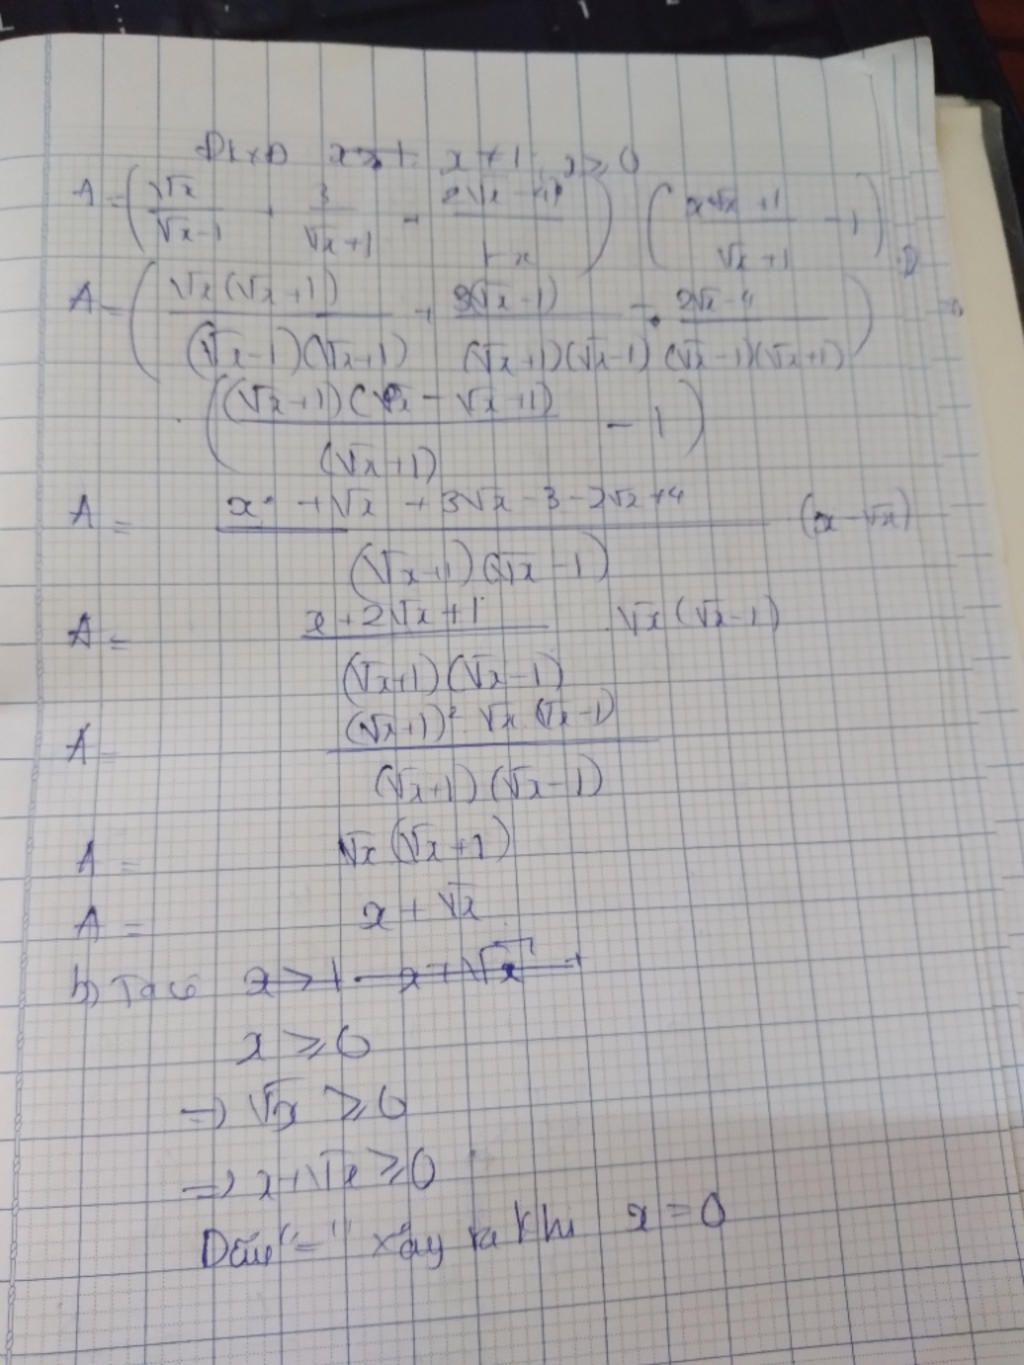 ĐKXĐ x≥1 x≠1, x≥0
A=(√x/(√x-1) + 3/(√x+1) - (2√x-4)/(1-x)) ((x√x+1)/(√x+1) - 1)
A=(√x(√x+1)/((√x-1)(√x+1)) + 3(√x-1)/((√x+1)(√x-1)) - (2√x-4)/((√x-1)(√x+1)))
. ((√x+1)(x-√x+1)/(√x+1) - 1)
A = (x+√x+3√x-3-2√x+4)/((√x+1)(√x-1)) (x-√x)
A = (x+2√x+1)/((√x+1)(√x-1)) √x(√x-1)
A = ((√x+1)² √x(√x-1))/((√x+1)(√x-1))
A = √x(√x+1)
A = x+√x
b) Ta có x>1 x+√x
x≥0
=> √x ≥0
=> x+√x ≥0
Dấu "=" xảy ra khi x=0